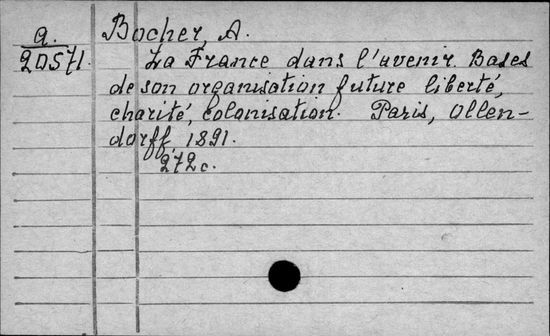 a.
20571.
Bocher, A.
La France dans l'avenir. Bases
de son organisation future liberté,
charité, colonisation. Paris, Ollen-
dorff, 1891.
272c.